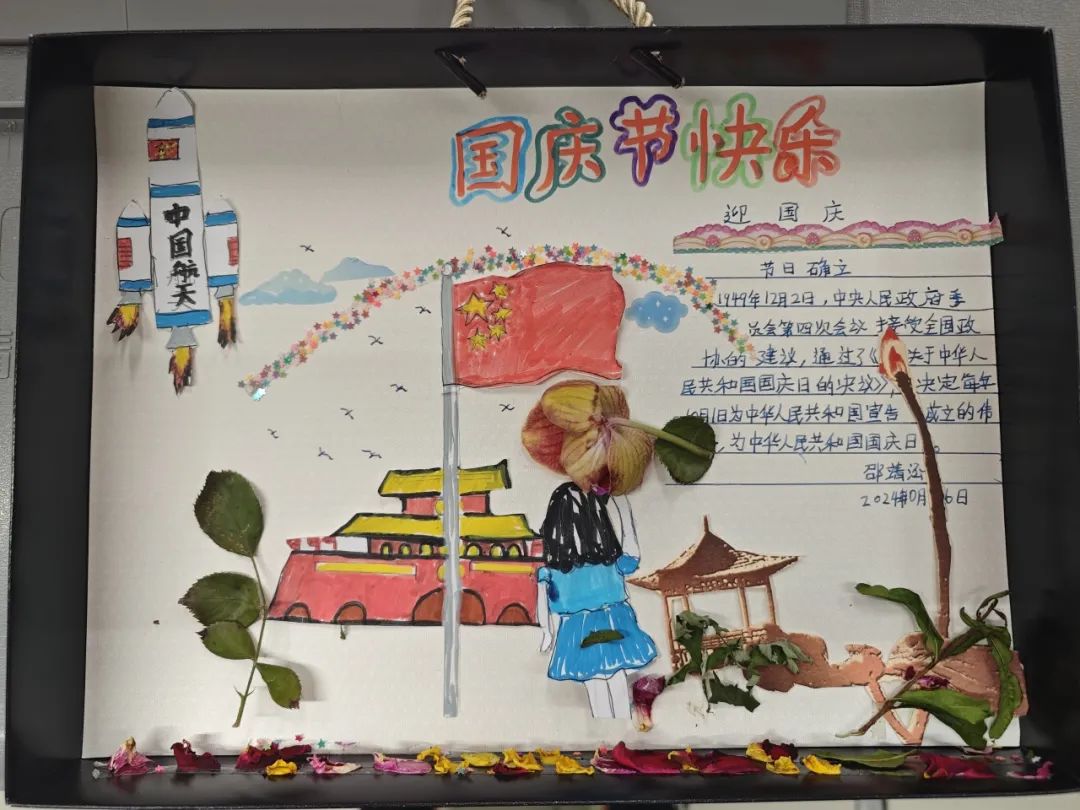 中国航天
国庆节快乐
迎 国 庆
节日 确立
1949年12月2日，中央人民政府委
员会第四次会议 接受全国政
协的 建议，通过了《 关于中华人
民共和国国庆日的决议》， 决定每年
10月1日为中华人民共和国宣告 成立的伟
，为中华人民共和国国庆日。
邵靖涵
2024年 6日